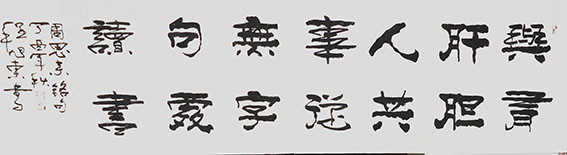 與有
肝胆
人共
事從
無字
句處
讀書
周恩来句
丁酉年秋